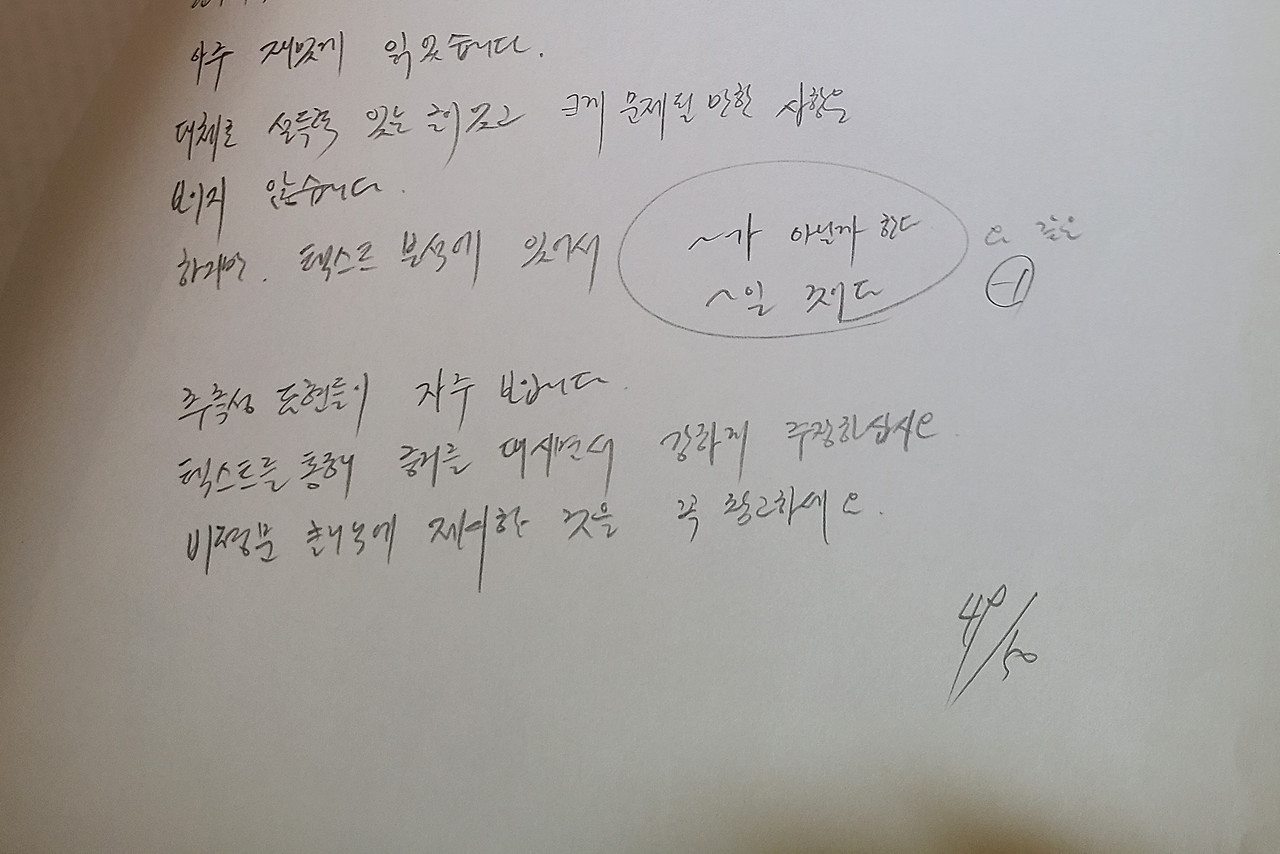 아주 재밌게 읽었습니다.
대체로 설득력 있는 글이었고 크게 문제될 만한 사항은
보이지 않습니다.
하지만, 텍스트 분석에 있어서 ~가 아닐까 한다 와 같은
~일 것이다 -1
추측성 표현들이 자주 보입니다.
텍스트를 통해 증거를 대시면서 강하게 주장하십시오.
비평문 에 제시한 것을 꼭 참고하세요.
49/50